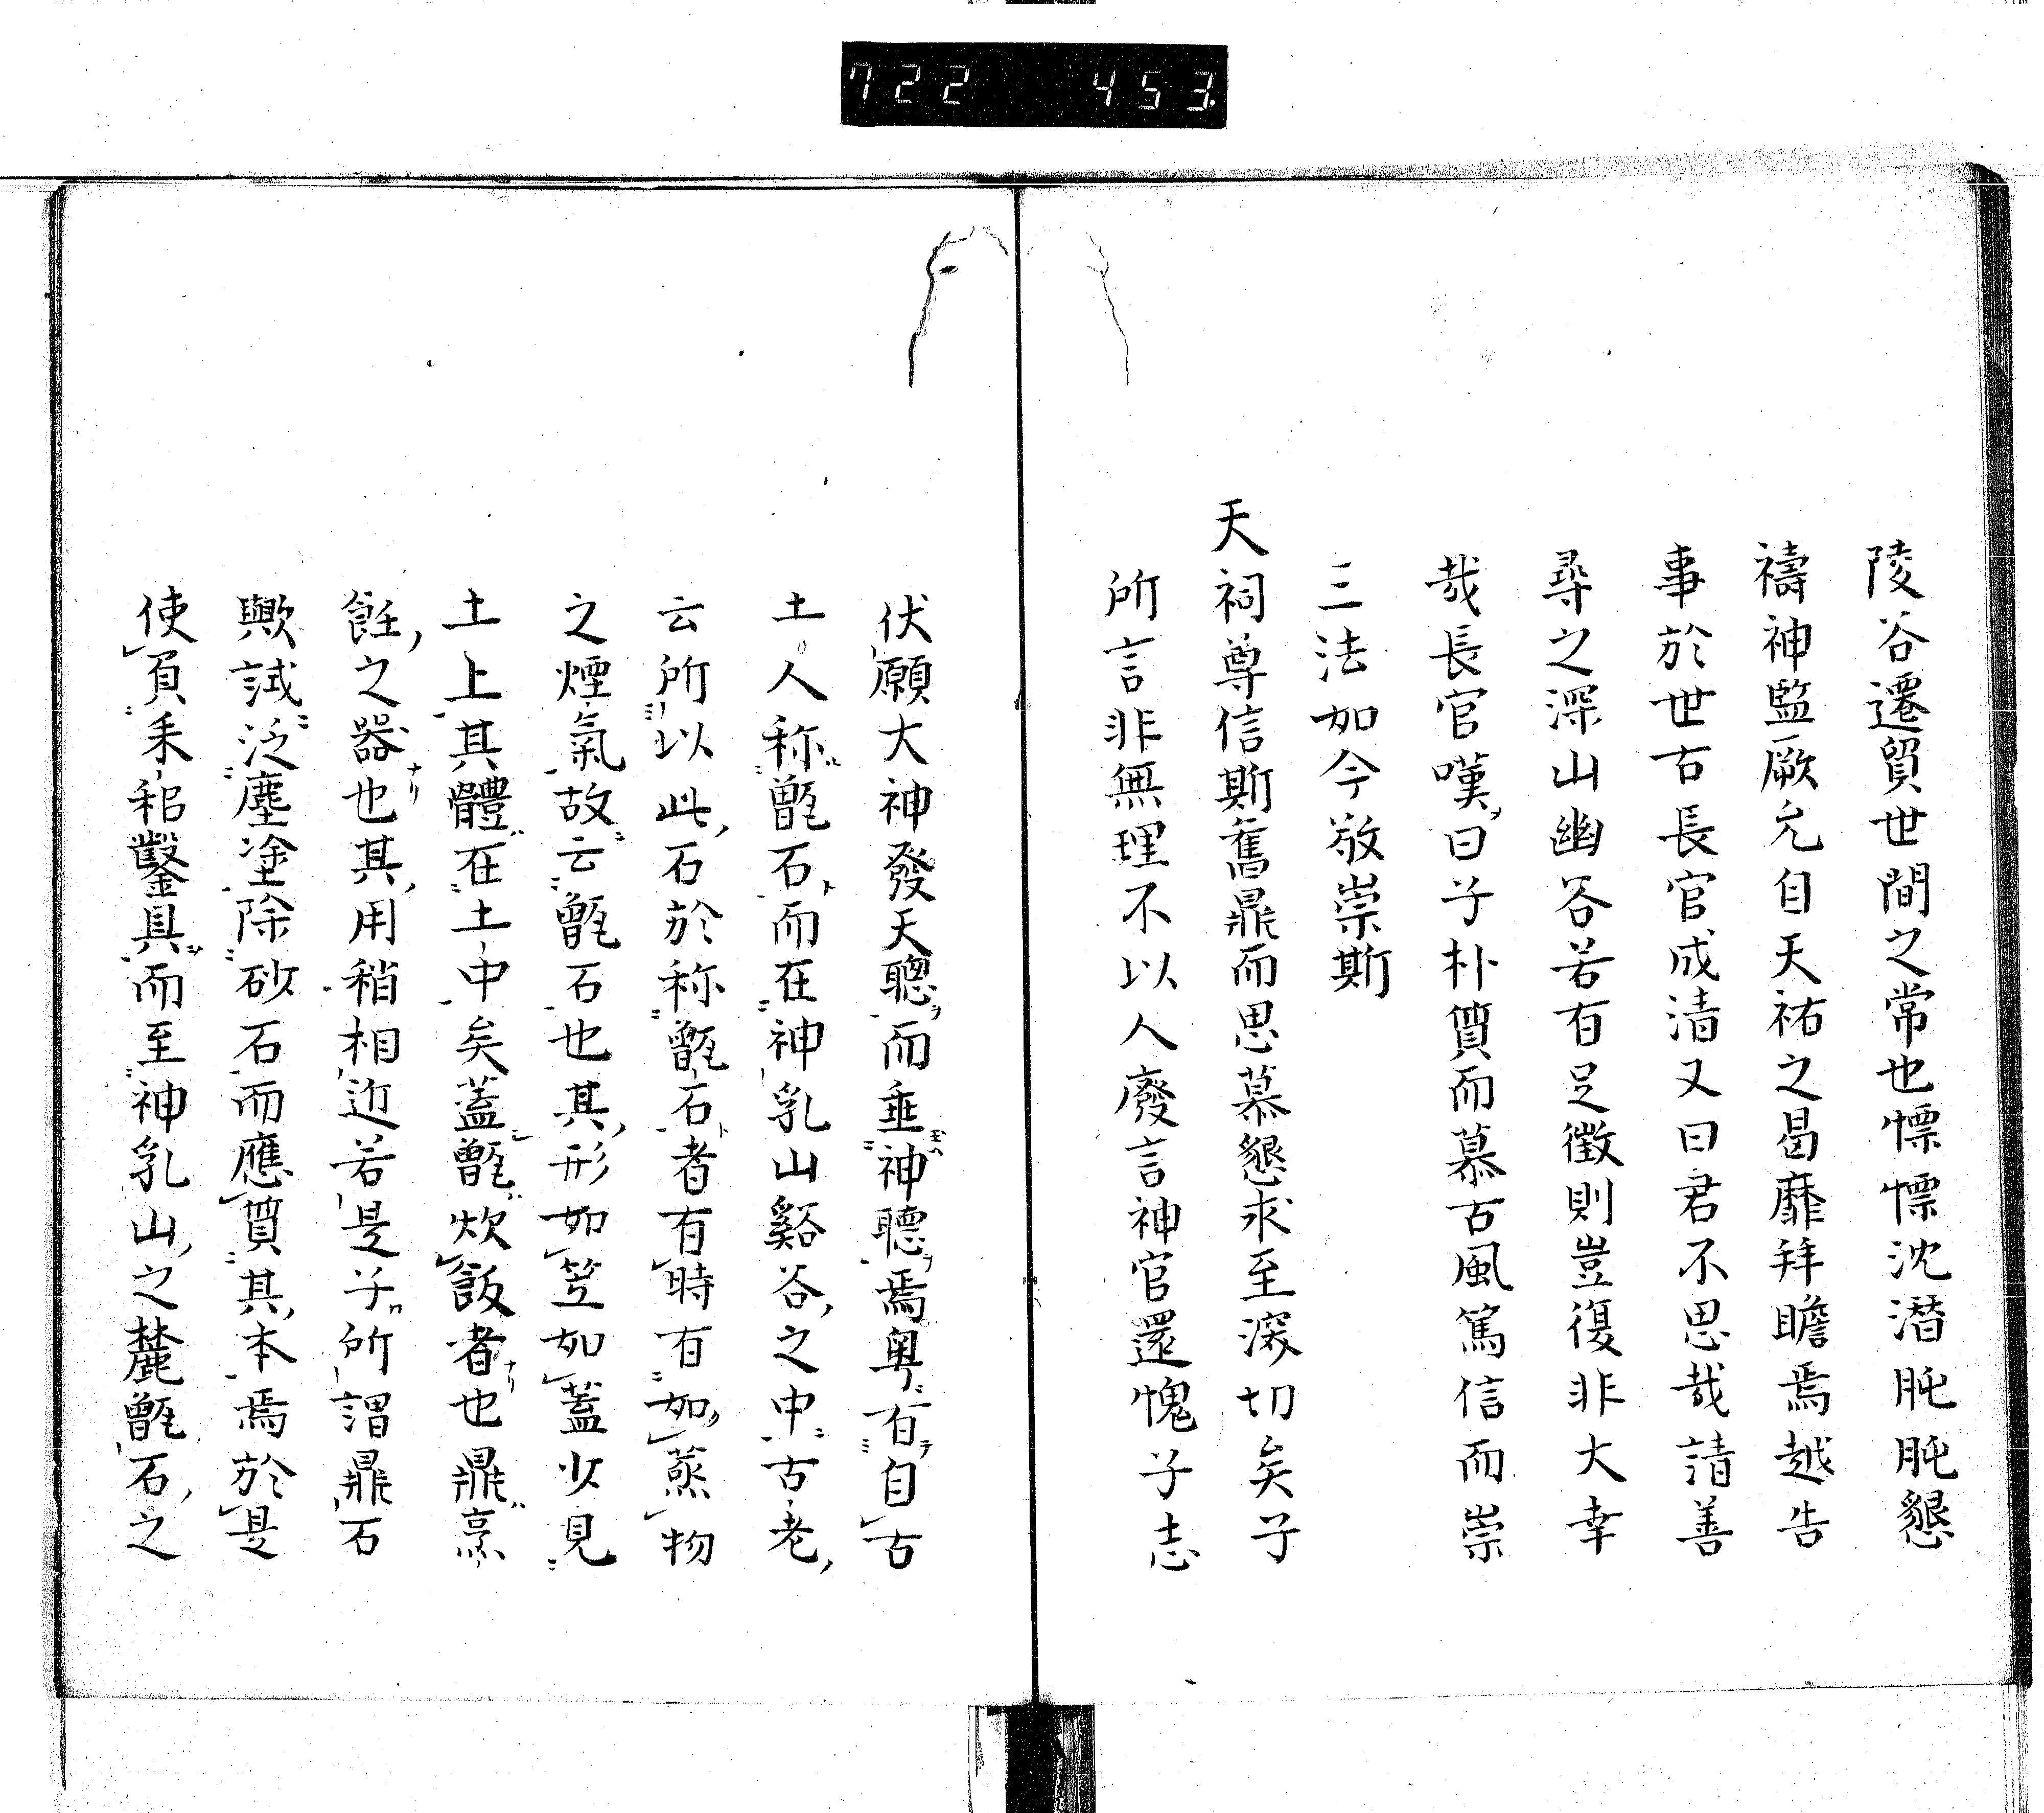 722 453
陵谷遷貿世間之常也慓慓沈潛肫肫懇
禱神監厥允自天祐之曷靡拜瞻焉越告
事於世古長官成清又曰君不思哉請善
尋之深山幽谷若有足徵則豈復非大幸
哉長官嘆曰子朴質而慕古風篤信而崇
三法如今敬崇斯
天祠尊信斯舊鼎而思慕懇求至深切矣子
所言非無理不以人廢言神官還愧子志
伏願大神發天聰ヲ而垂神聽ヲ焉粤ニ有テ自古
土人称甑石ト而在神乳山谿谷之中ニ古老
云所以此石於称甑石ト者有時有如蒸物
之煙氣故ニ云甑石也其形如笠如蓋少見
土上其體在土中矣蓋甑炊飯者ナリ也鼎烹
飪之器ナリ也其用稍相近若是子所謂鼎石
歟試ニ泛塵塗除砂石而應質其本焉於是
使負耒耜鑿具而至神乳山之麓甑石之